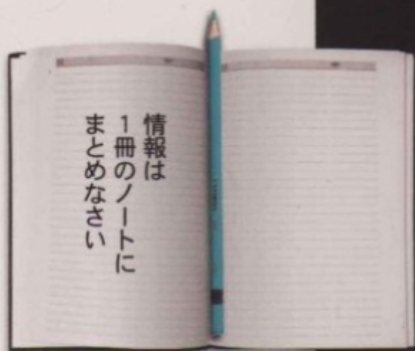 情報は
１冊のノートに
まとめなさい